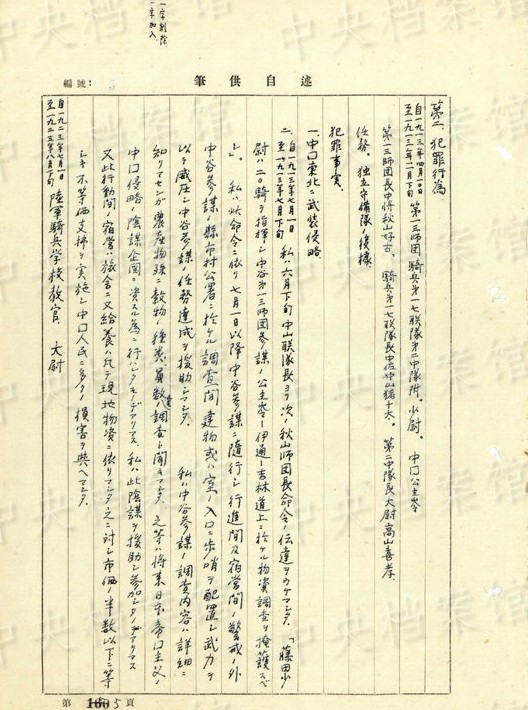 一字削除
一字加入
述自供筆
編號:
第二、犯罪行為
自一九一三年四月一〇日
至一九一三年一二月下旬
第一三師団騎兵第一七聯隊第二中隊附。少尉。中口公主嶺
第一三師団長中將秋山好古。騎兵第一七聯隊長中佐中山繁十太。第二中隊長大尉高山喜孝。
任務。独立守備隊ノ後據。
犯罪事実。
一、中口東北ニ武装侵略。
二、自一九一三年七月一日
至一九一三年七月下旬
私ハ六月下旬中山聯隊長ヨリ次ノ秋山師団長命令ノ伝達ヲウケマシタ。「藤田少
尉ハ二〇騎ヲ指揮シ中谷第一三師団参謀ノ公主嶺ー伊通ー吉林道上ニ於ケル物資調査ヲ掩護スベ
シ」。私ハ此命令ニ依リ七月一日以降中谷参謀ニ随行シ行進間及宿営間ノ警戒ノ外
中谷参謀ノ縣市村公署ニ於ケル調査間建物或ハ室ノ入口ニ歩哨ヲ配置シ武力ヲ
以テ威圧シ中谷参謀ノ任務達成ヲ援助シマシタ。私ハ中谷参謀ノ調査内容ハ詳細ニ
知リマセンガ農産物殊ニ穀物ノ種類、員数達調査ト聞キマシタ。之等ハ将来日本帝口主义ノ
中口侵略ノ陰謀企図ニ資スル為ニ行ハレタモノデアリマス。私ハ此陰謀ヲ援助シ参加シタノデアリマス
又此行動間ノ宿営ハ旅舎ニ又給養ハ凡テ現地物資ニ依リマシタ之ニ対シ市価ノ半数以下ニ等
シキ不等価支拂ヲ実施シ中口人民ニ多クノ損害ヲ與ヘマシタ。
自一九二三年七月一日
至一九二三年八月下旬
陸軍騎兵学校教官。大尉
第 5 頁
中央档案馆